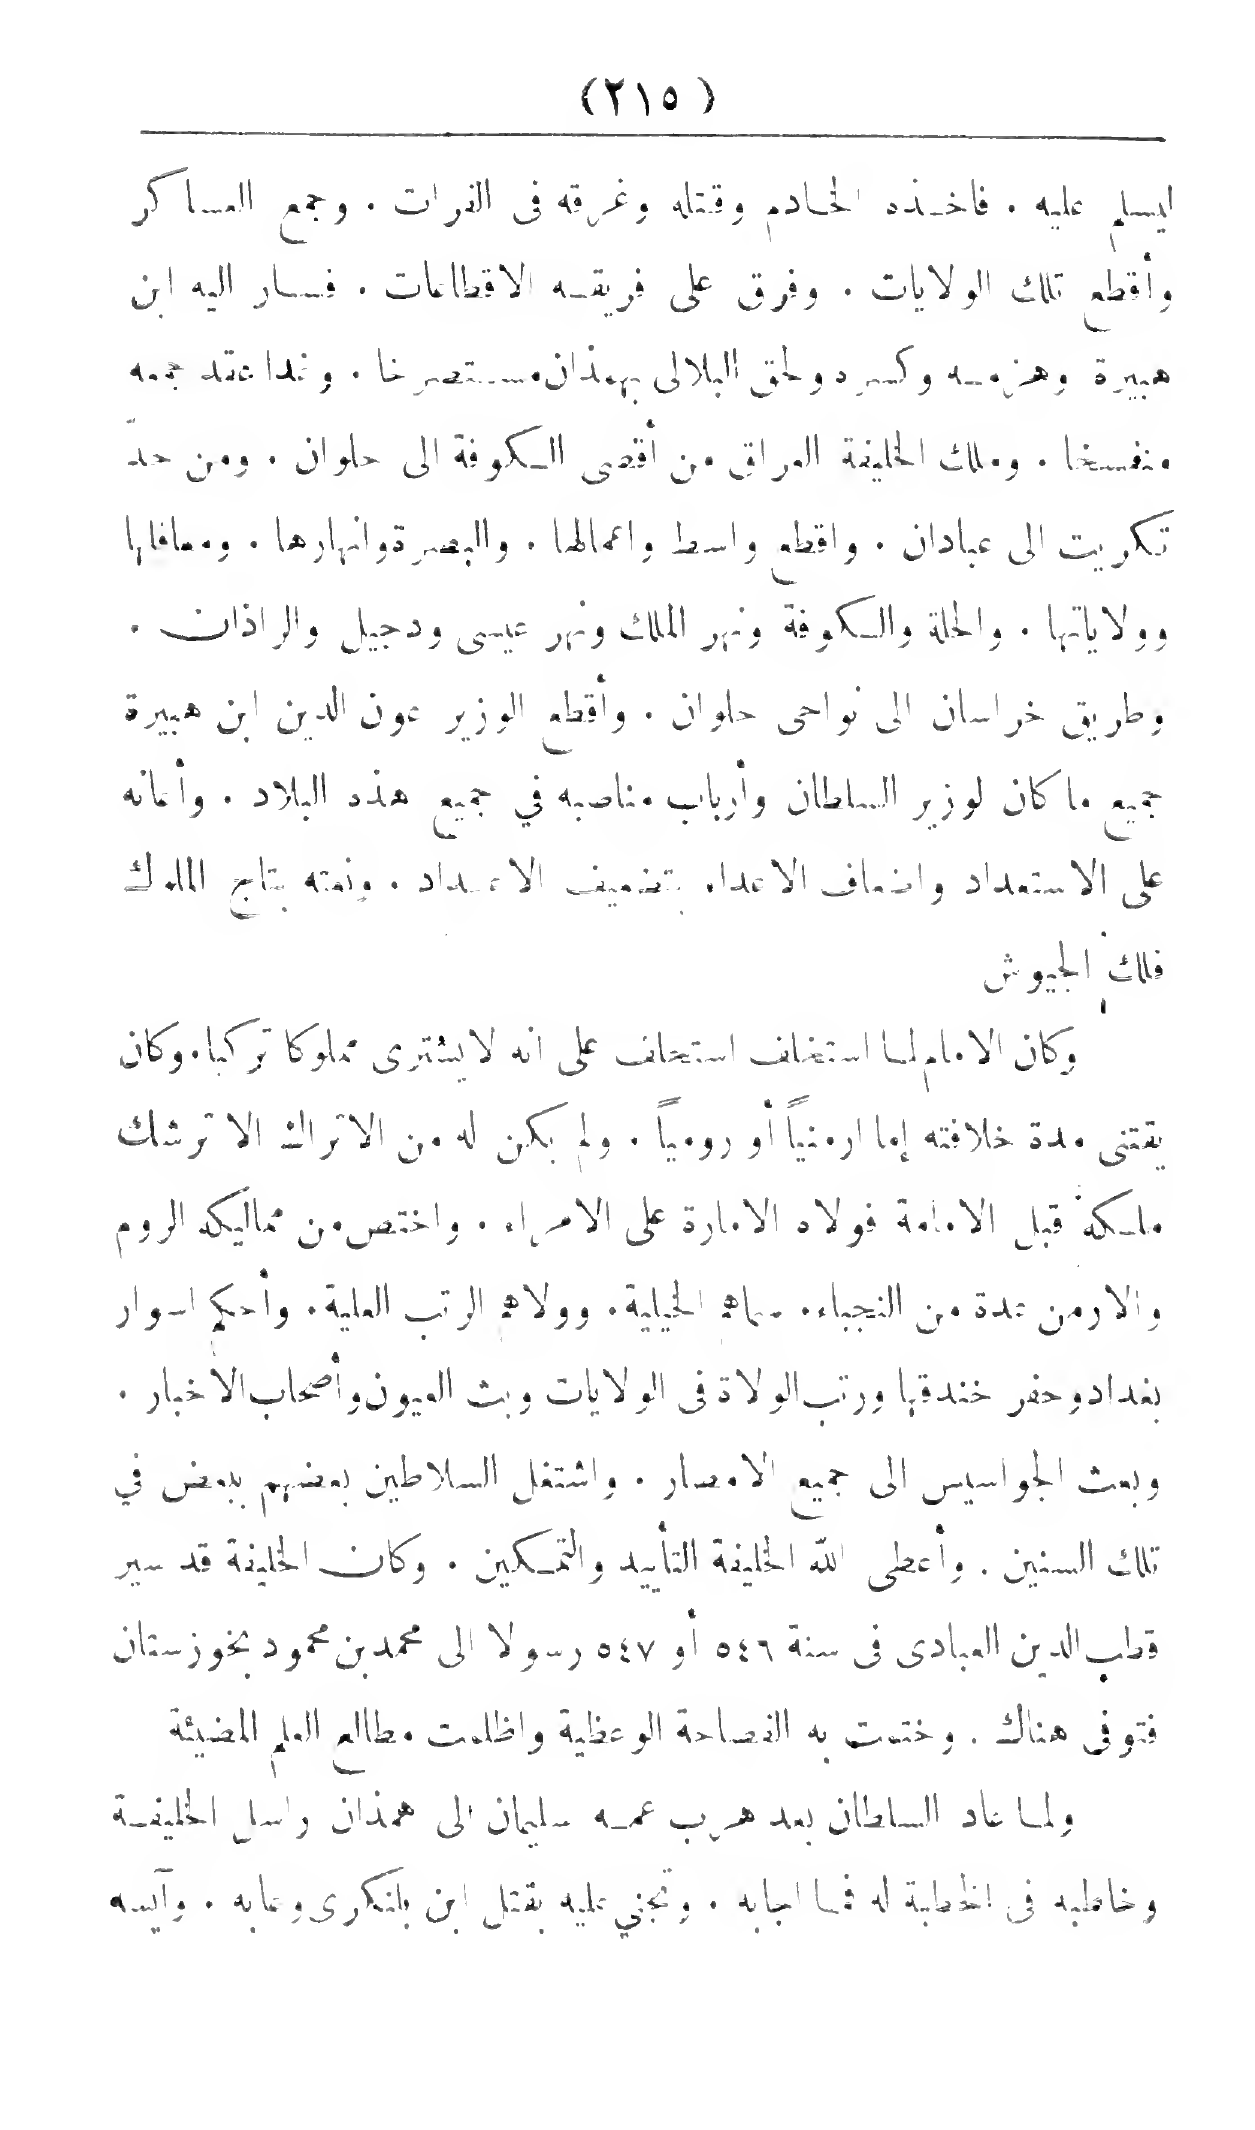 (٢١٥)
ليسلم عليه . فاخذه الخادم وقتله وغرقه فى الفرات . وجمع العساكر
وأقطع تلك الولايات . وفرق على فريقه الاقطاعات . فسار اليه ابن
هبيرة وهزمه وكسره ولحق البلالى بهمذان مستصرخا . وغدا عقد جمعه
منفسخا . وملك الخليفة العراق من أقصى الكوفة الى حلوان . ومن حدّ
تكريت الى عبادان . واقطع واسط واعمالها . والبصرة وانهارها . ومعاقلها
وولاياتها . والحلة والكوفة ونهر الملك ونهر عيسى ودجيل والراذان .
وطريق خراسان الى نواحى حلوان . وأقطع الوزير عون الدين ابن هبيرة
جميع ما كان لوزير السلطان وأرباب مناصبه في جميع هذه البلاد . وأعانه
على الاستعداد واضعاف الاعداء بتضعيف الاعداد . ونعته بتاج الملوك
فلك الجيوش
وكان الامام لما استخلف استحلف على انه لا يشترى مملوكا تركيا . وكان
يقتنى مدة خلافته إما ارمنياً أو رومياً . ولم يكن له من الاتراك الا ترشك
ملكه قبل الامامة فولاه الامارة على الامراء . واختص من مماليكه الروم
والارمن عدة من النجباء . سماهم الخيلية . وولاهم الرتب العلية . وأحكم اسوار
بغداد وحفر خندقها ورتب الولاة فى الولايات وبث العيون وأصحاب الاخبار .
وبعث الجواسيس الى جميع الامصار . واشتغل السلاطين بعضهم ببعض في
تلك السنين . وأعطى الله الخليفة التأييد والتمكين . وكان الخليفة قد سير
قطب الدين العبادى فى سنة ٥٤٦ أو ٥٤٧ رسولا الى محمد بن محمود بخوزستان
فتوفى هناك . وختمت به الفصاحة الوعظية واظلمت مطالع العلم المضيئة
ولما عاد السلطان بعد هرب عمه سليمان الى همذان راسل الخليفة
وخاطبه فى الخطبة له فما اجابه . وتجني عليه بقتل ابن بلنكرى وعابه . وآيسه